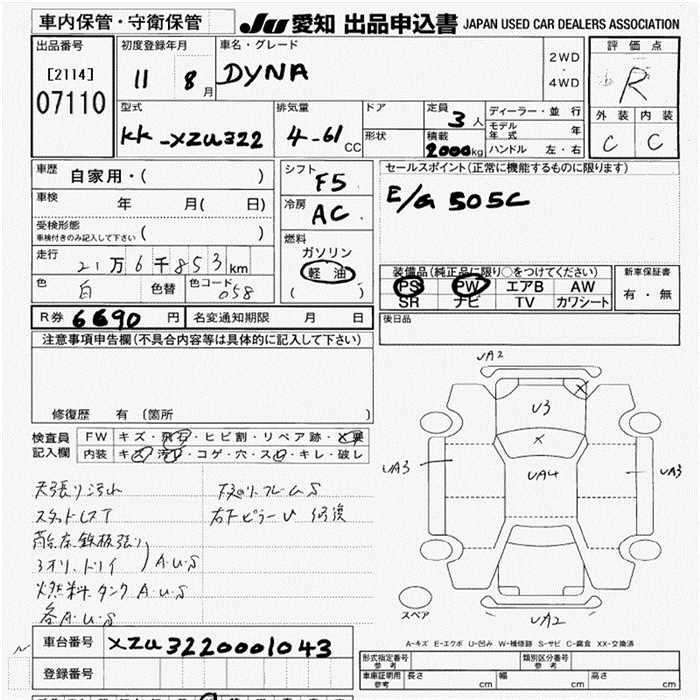 車内保管・守衛保管
JU 愛知 出品申込書 JAPAN USED CAR DEALERS ASSOCIATION
出品番号
[2114]
07110
初度登録年月
11 8月
車名・グレード
DYNA
2WD
・
4WD
評価点
R
外装 内装
C C
型式
KK-XZU322
排気量
4-61 CC
ドア
形状
定員 3人
積載 2000kg
ディーラー・並 行
モデル年式 年
ハンドル 左・右
車歴 自家用・( )
車検 年 月( 日)
受検形態
車検付きのみ記入して下さい ( )
走行 21万6千853km
色 白 色替 色コード 058
シフト F5
冷房 AC
燃料
ガソリン
軽油
( )
セールスポイント(正常に機能するものに限ります)
E/G 505C
装備品(純正品に限り○をつけてください)
PS PW エアB AW
SR ナビ TV カワシート
新車保証書
有・無
R券 6690円 名変通知期限 月 日
後日品
注意事項申告欄(不具合内容等は具体的に記入して下さい)
修復歴 有 〔箇所 〕
検査員記入欄
FW キズ・飛石・ヒビ割・リペア跡・X要
内装 キズ・汚レ・コゲ・穴・スレ・キレ・破レ
天張り汚れ
スタッドレスT
荷床鉄板張り
アオリ、トリイ A・U・S
燃料タンク A・U・S
各A・U・S
下廻り・フレームS
右下ピラーU
UA2
U3
X
X
UA4
UA3
UA3
UA2
スペア
A-キズ E-エクボ U-凹み W-補修跡 S-サビ C-腐食 XX-交換済
車台番号 XZU3220001043
登録番号
形式指定番号 参考
類別区分番号 参考
車庫証明用 参考 長さ cm 幅 cm 高さ cm